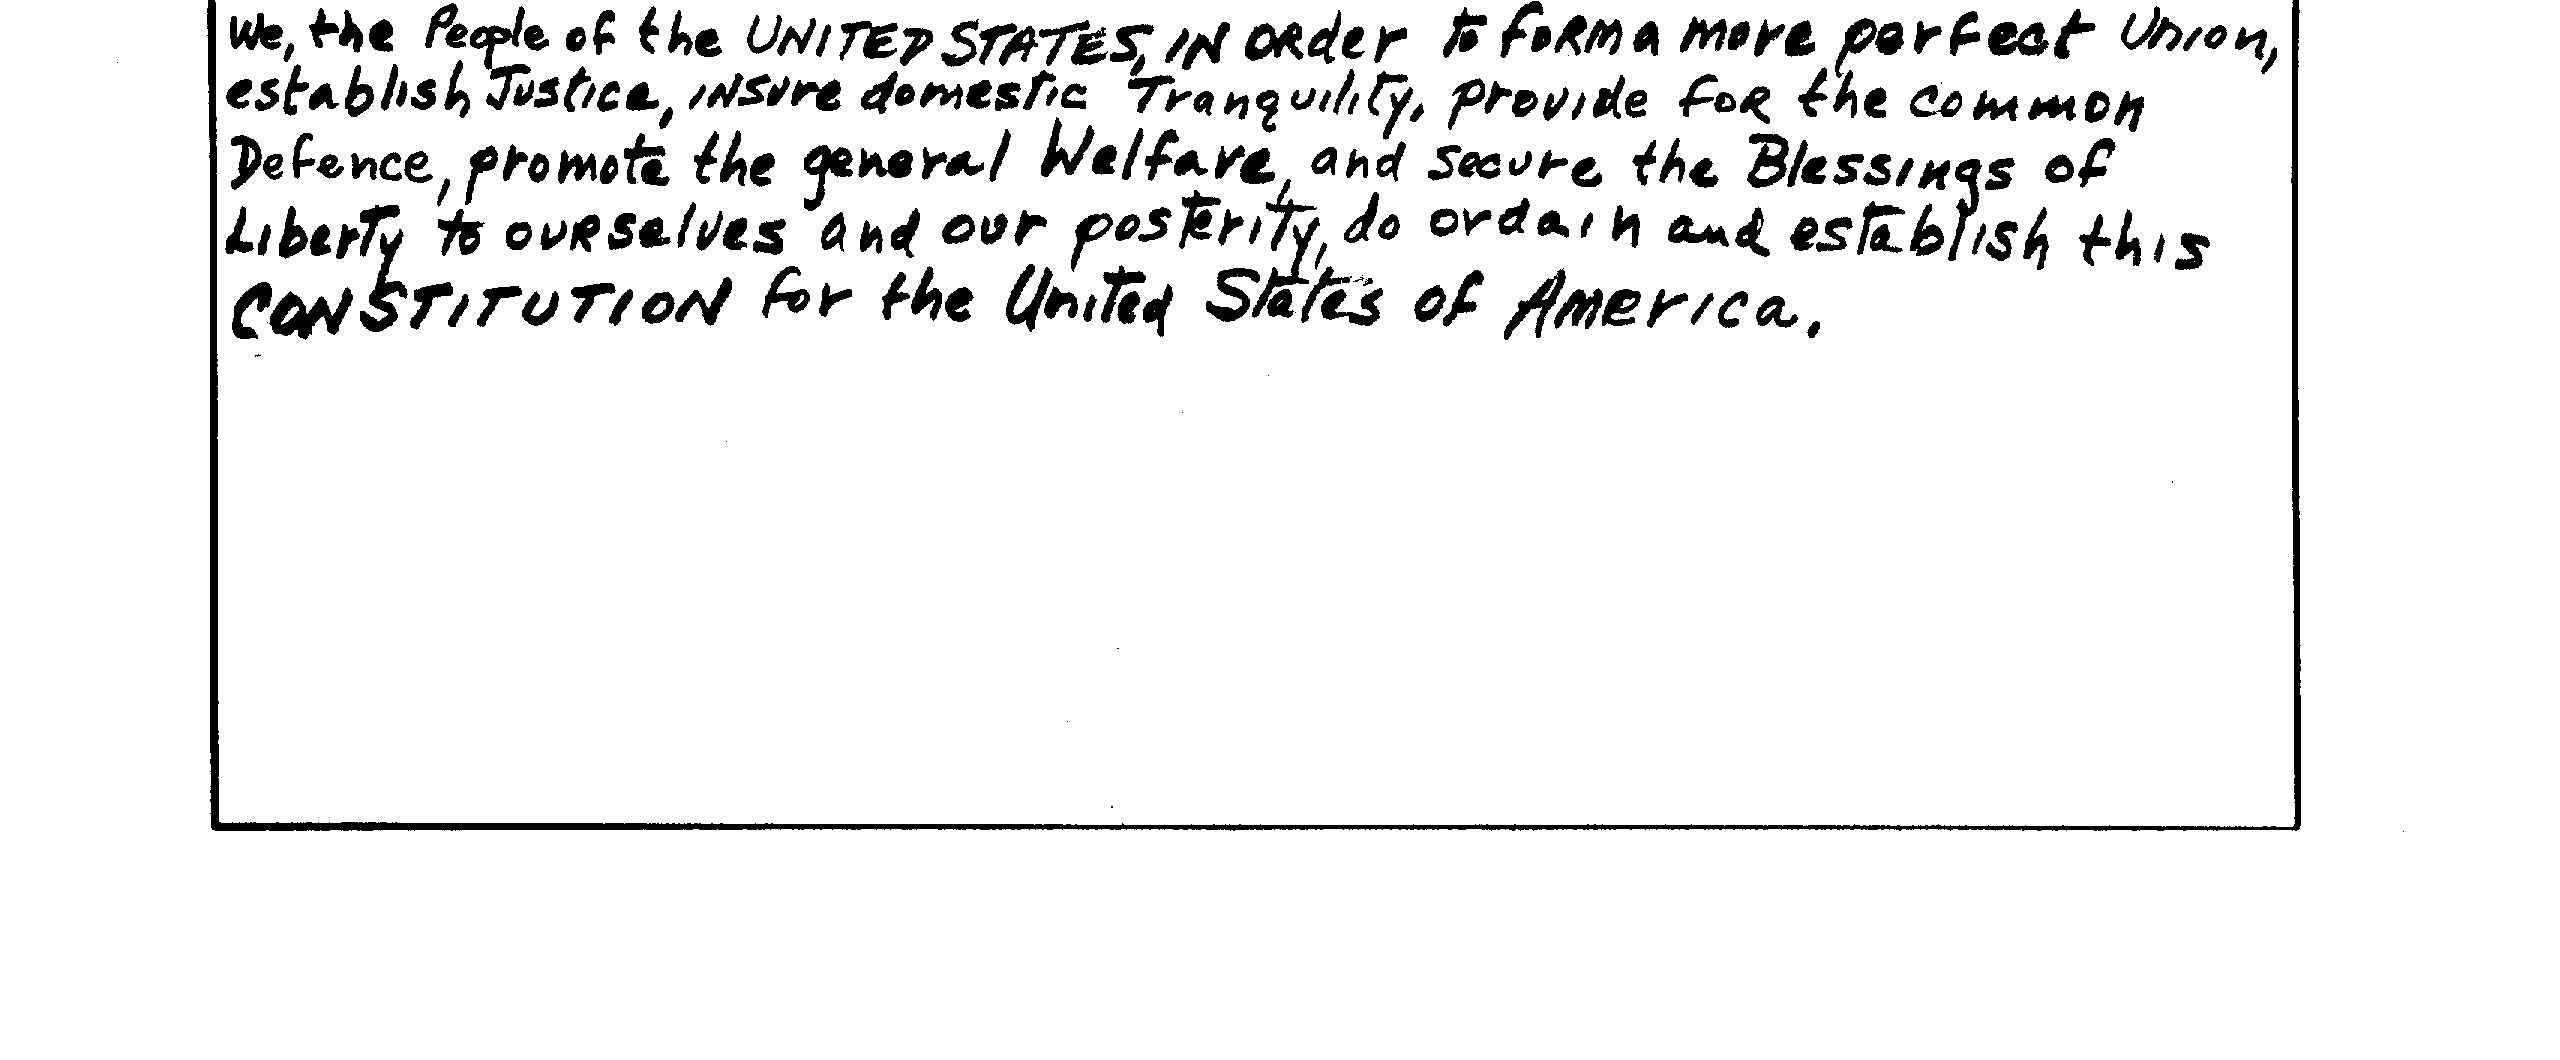 We, the People of the UNITED STATES, IN ORder to foRM a more perfect Union,
establish Justice, iNSure domestic Tranquility, provide foR the common
Defence, promote the general Welfare, and secure the Blessings of
Liberty to ouRselves and our posterity, do ordain and establish this
CONSTITUTION for the United States of America.